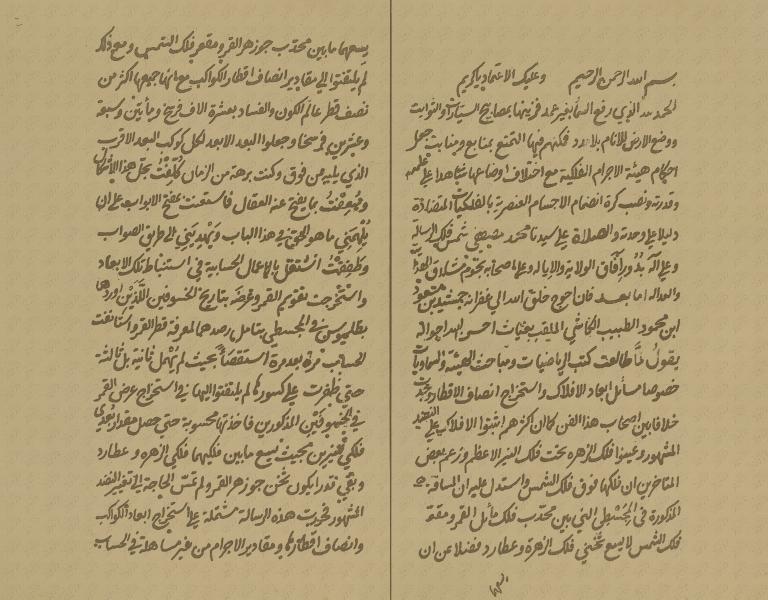 بسم الله الرحمن الرحيم وعليك الاعتماد يا كريم
الحمد لله الذي رفع السماء بغير عمد وزينها بمصابيح السيارات والثوابت
ووضع الارض للانام بلا مدد فكلهم فيها التمتع بمنابع ومنابت جعل
احكام هيئة الاجرام الفلكية مع اختلاف اوضاعها شاهدا على عظمته
وقدرته ونصب كرة انضمام الاجسام العنصرية بالفلكيات المتضادة
دليلا على وحدته والصلاة على سيدنا محمد مصطفى شمس فلك الرسالة
وعلى آله بدور آفاق الولاية والاياله وعلى اصحابه نجوم
والعداله اما بعد فان احوج خلق الله الى غفرانه جمشيد بن مسعود
ابن محمود الطبيب الكاشي الملقب بغياث احسن الله احواله
يقول لما طالعت كتب الرياضيات ومباحث الهيئة والسماويات
خصوصا مسائل ابعاد الافلاك واستخراج انصاف الاقطار وجدت
خلافا بين اصحاب هذا الفن كما ان اكثرهم اثبتوا الافلاك على النضد
المشهور وعينوا فلك الزهره تحت فلك النير الاعظم وزعم بعض
المتاخرين ان فلكها فوق فلك الشمس واستدل عليه ان المسافة
المذكورة في المجسطي التي بين محدب فلك مائل القمر ومقعر
فلك الشمس لا يسع ثخني فلك الزهرة وعطارد فضلا عن ان
يسعها
يسعهما ما بين محدب جوزهر القمر ومقعر فلك الشمس ومع ذلك
لم يلتفتوا الى مقادير انصاف اقطار الكواكب مع انها جميعها اكثر من
نصف قطر عالم الكون والفساد بعشرة الاف فرسخ ومأتين وسبعة
وعشرين فرسخا وجعلوا البعد الابعد لكل كوكب البعد الاقرب
الذي يليه من فوق وكنت برهة من الزمان كلفت بحل هذا الاشكال
بما يفتح عنه العقال فاستعنت بمفتح الابواب على ان
يلهمني ما هو الحق في هذا الباب ويهديني الى طريق الصواب
وطفقت اشتغل بالاعمال الحسابية في استنباط تلك الابعاد
واستخرجت تقويم القمر وعرضه بتاريخ الخسوفين اللذين اوردهما
بطلميوس في المجسطي بتامل رصدهما لمعرفة قطر القمر واستانفت
الحساب مرة بعد مرة استقصاء بحيث لم تهمل ثانية بل ثالثة
حتى ظفرت على كسور كما لم يلتفتوا اليها في استخراج عرض القمر
في الخسوفين المذكورين فاخذتها محسوبة حتى حصل مقدار بعدي
فلكي النيرين بحيث يسع ما بين فلكيهما فلكي الزهره وعطارد
وبقي قدر ايكون ثخن جوزهر القمر ولم تمس الحاجة الى تغيير النضد
المشهور فحررت هذه الرسالة مشتملة على استخراج ابعاد الكواكب
وانصاف اقطارها ومقادير الاجرام من غير مساهلة في الحساب